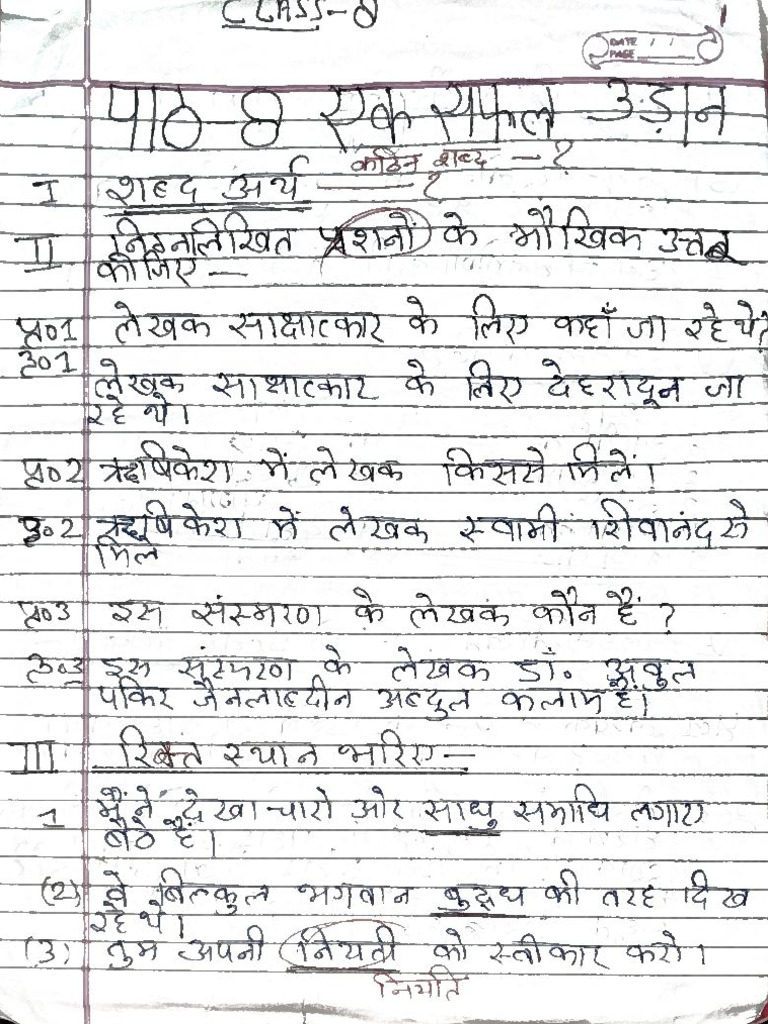 CLASS-8
DATE
PAGE
पाठ-8 एक सफल उड़ान
कठिन शब्द - ?
I शब्द अर्थ - ?
II निम्नलिखित प्रशनों के मौखिक उत्तर
कीजिए -
प्र०1 लेखक साक्षात्कार के लिए कहाँ जा रहे थे?
उ०1
लेखक साक्षात्कार के लिए देहरादून जा
रहे थे।
प्र०2 ऋषिकेश में लेखक किससे मिलें।
उ०2 ऋषिकेश में लेखक स्वामी शिवानंद से
मिले
प्र०3 इस संस्मरण के लेखक कौन हैं ?
उ०3 इस संस्मरण के लेखक डॉ. अबुल
पकिर जैनलाब्दीन अब्दुल कलाम हैं।
III रिक्त स्थान भारिए-
1 मैं ने देखा चारो ओर साधु समाधि लगाए
बैठे हैं।
(2) वे बिल्कुल भगवान बुद्ध की तरह दिख
रहे थे।
(3) तुम अपनी नियती को स्वीकार करो।
नियति